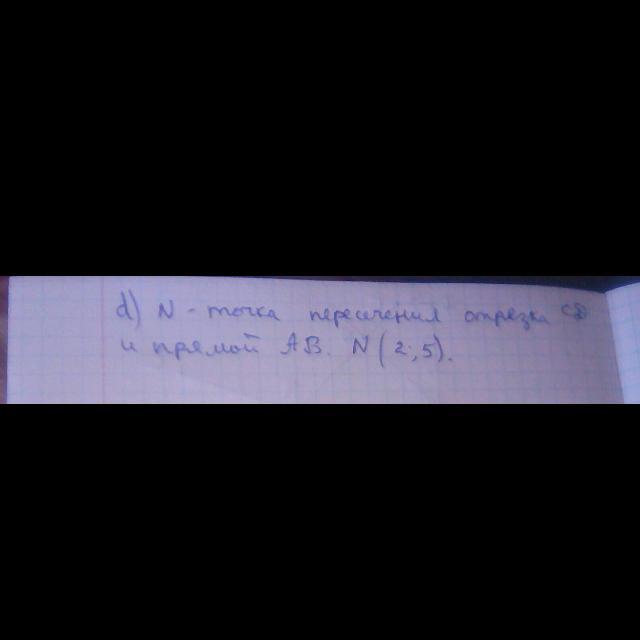 d) N - точка пересечения отрезка CD
и прямой AB. N(2,5).